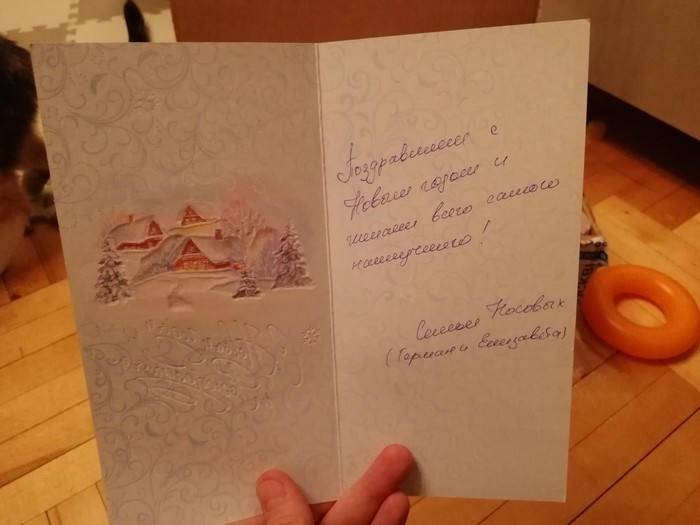 Поздравляем с
Новым годом и
желаем всего самого
наилучшего!
Семья Носовых
(Герман и Елизавета)